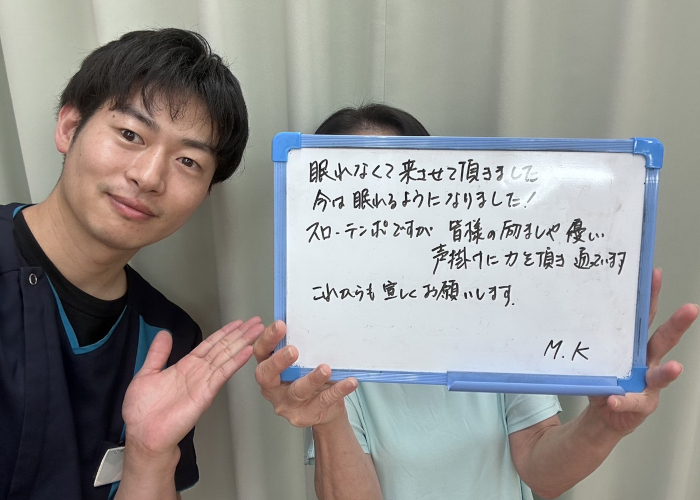 眠れなくて来させて頂きました
今は眠れるようになりました!
スローテンポですが 皆様の励ましや優しい
声掛けに力を頂き通っています
これからも宜しくお願いします.
M.K